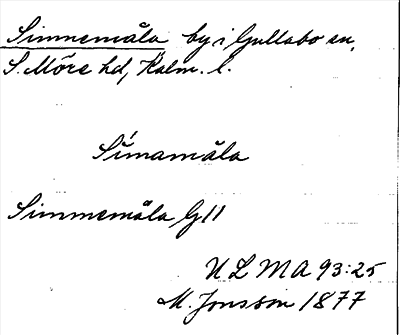 Simnemåla by i Gullabo sn,
S. Möre hd, Kalm. l.
Simamåla
Simmemåla G11
ULMA 93:25
M. Jonsson 1877